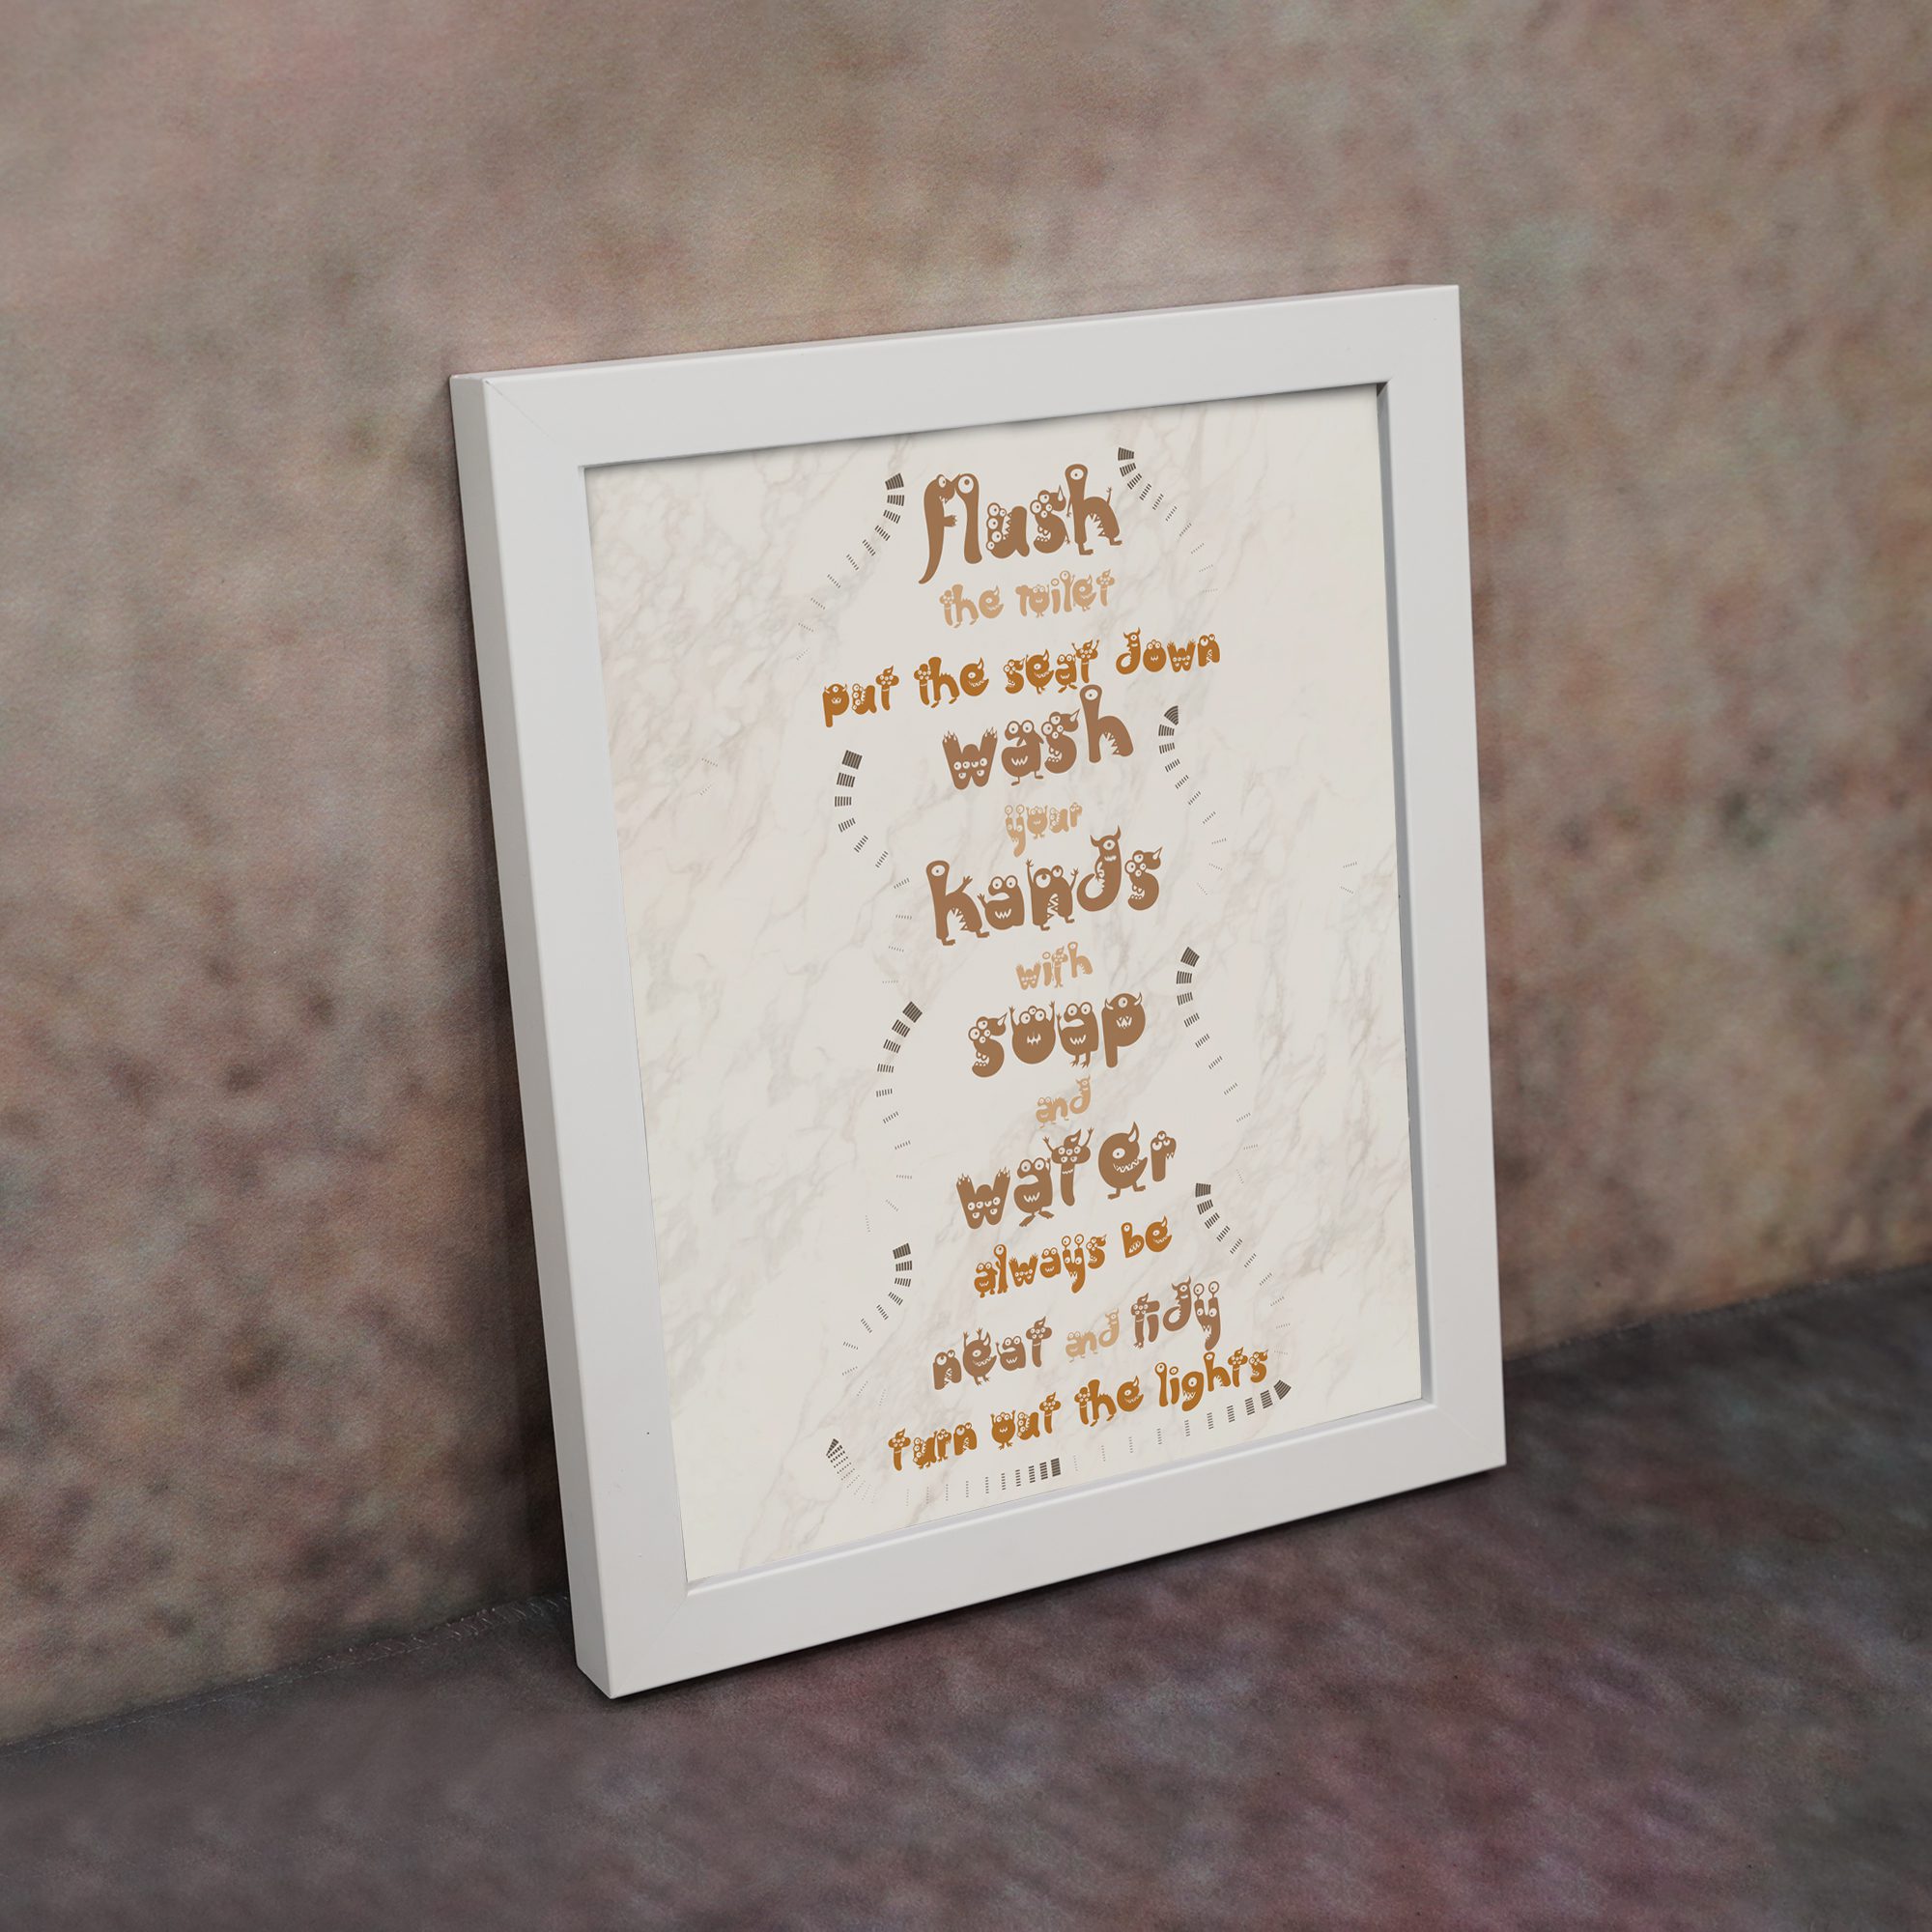 flush
the toilet
put the seat down
wash
your
hands
with
soap
and
water
always be
neat and tidy
turn out the lights